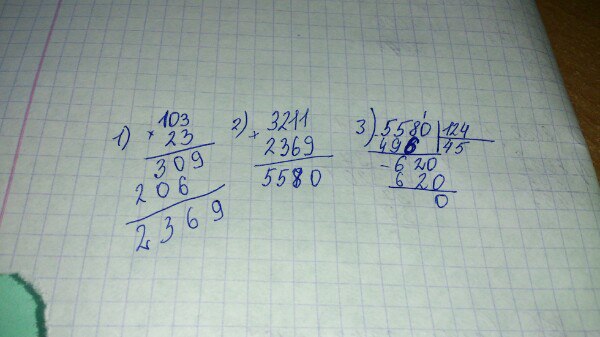 1) 103
× 23
309
206
2369
2) 3211
+ 2369
5580
3) - 5580 | 124
496 | 45
- 620
620
0